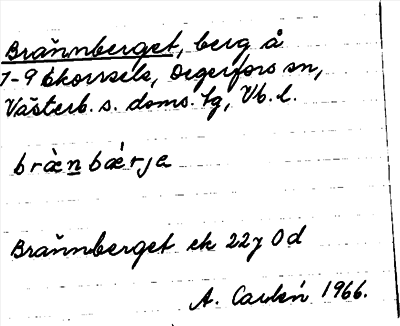 Brännberget, berg å
7-9 Ekorrsele, Degerfors sn,
Västerb. s. doms. tg, Vb. l.
bræ̀n bǽrja
Brännberget ek 22J 0d
A. Carlén 1966.